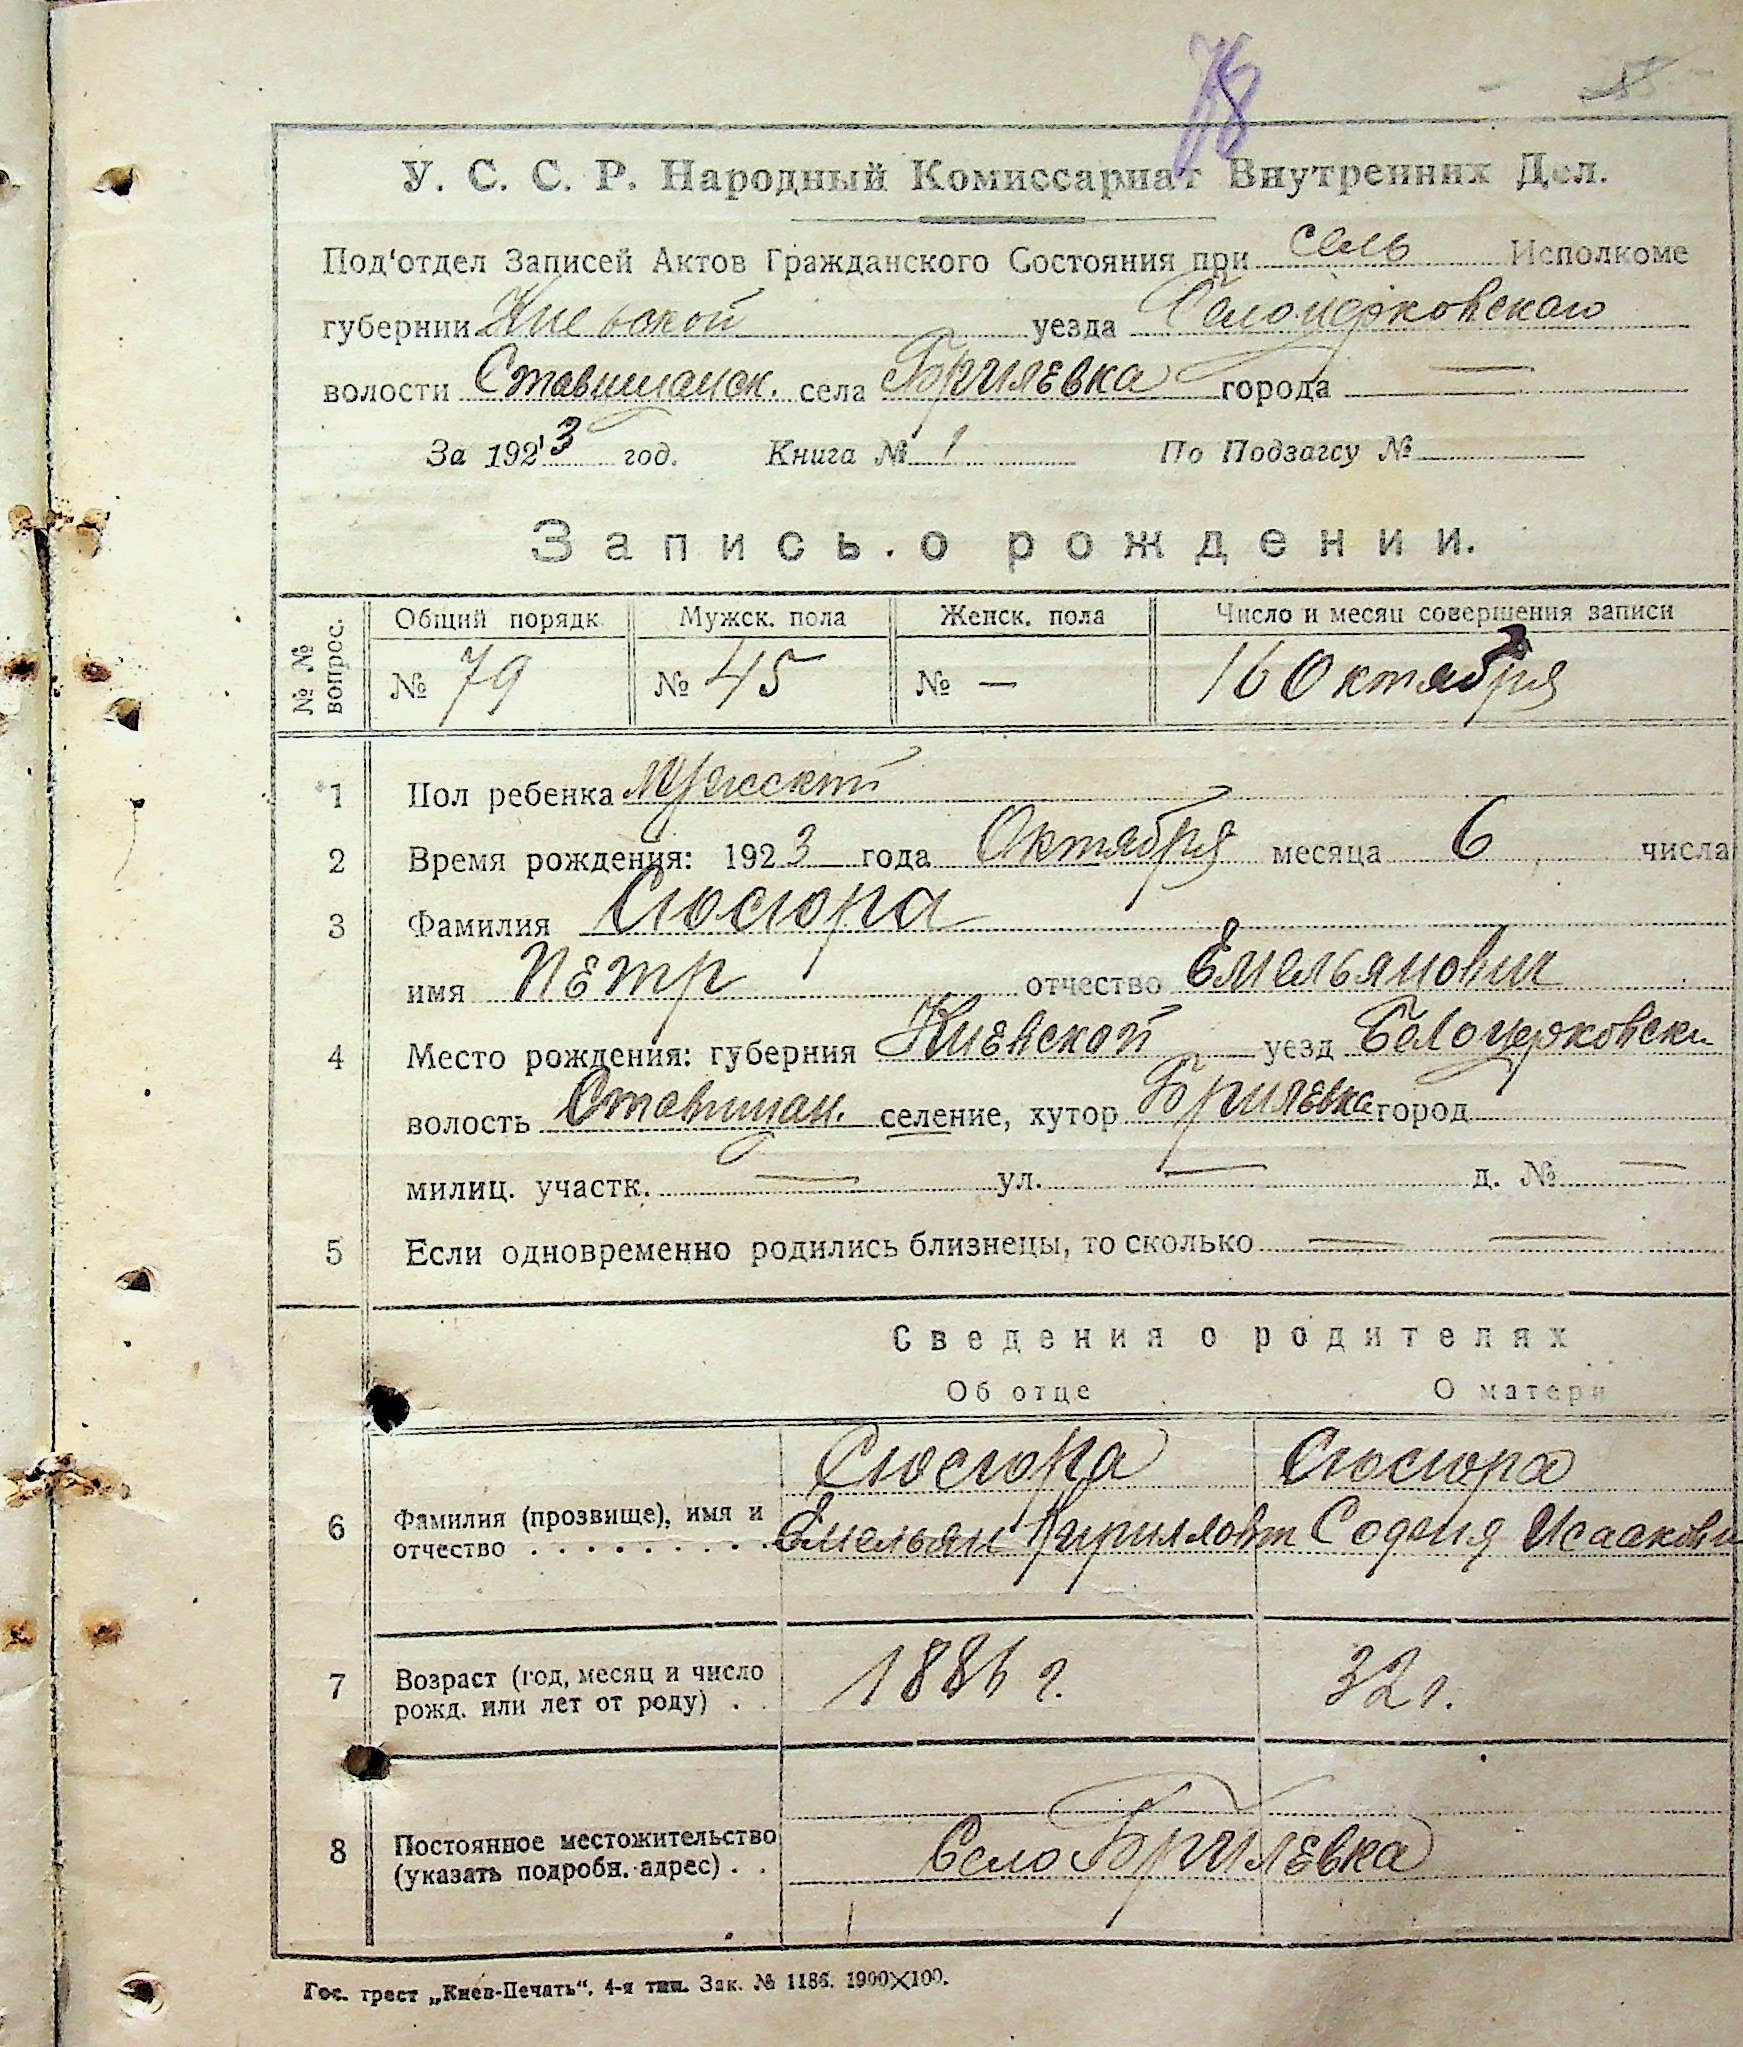 78
У. С. С. Р. Народный Комиссариат Внутренних Дел.
Под'отдел Записей Актов Гражданского Состояния при сель Исполкоме
губернии Киевской уезда Белоцерковского
волости Ставищанск. села Брилевка города —
За 1923 год. Книга № 1 По Подзагсу №
Запись о рождении.
№ № вопрос. Общий порядк. Мужск. пола Женск. пола Число и месяц совершения записи
№ 79 № 45 № — 16 Октября
1 Пол ребенка мужской
2 Время рождения: 1923 года Октября месяца 6 числа
3 Фамилия Сюсюра
имя Петр отчество Емельянович
4 Место рождения: губерния Киевской уезд Белоцерковски
волость Ставищан. селение, хутор Брилевка город
милиц. участк. — ул. — д. № —
5 Если одновременно родились близнецы, то сколько — —
Сведения о родителях
Об отце О матери
Сюсюра Сюсюра
6 Фамилия (прозвище), имя и отчество . . . . . . . . . Емельян Кириллов Исааковн
7 Возраст (год, месяц и число рожд. или лет от роду) . . 1886 г. 32 г.
8 Постоянное местожительство (указать подробн. адрес) . . Село Брилевка
Гос. трест „Киев-Печать“. 4-я тип. Зак. № 1186. 1900×100.